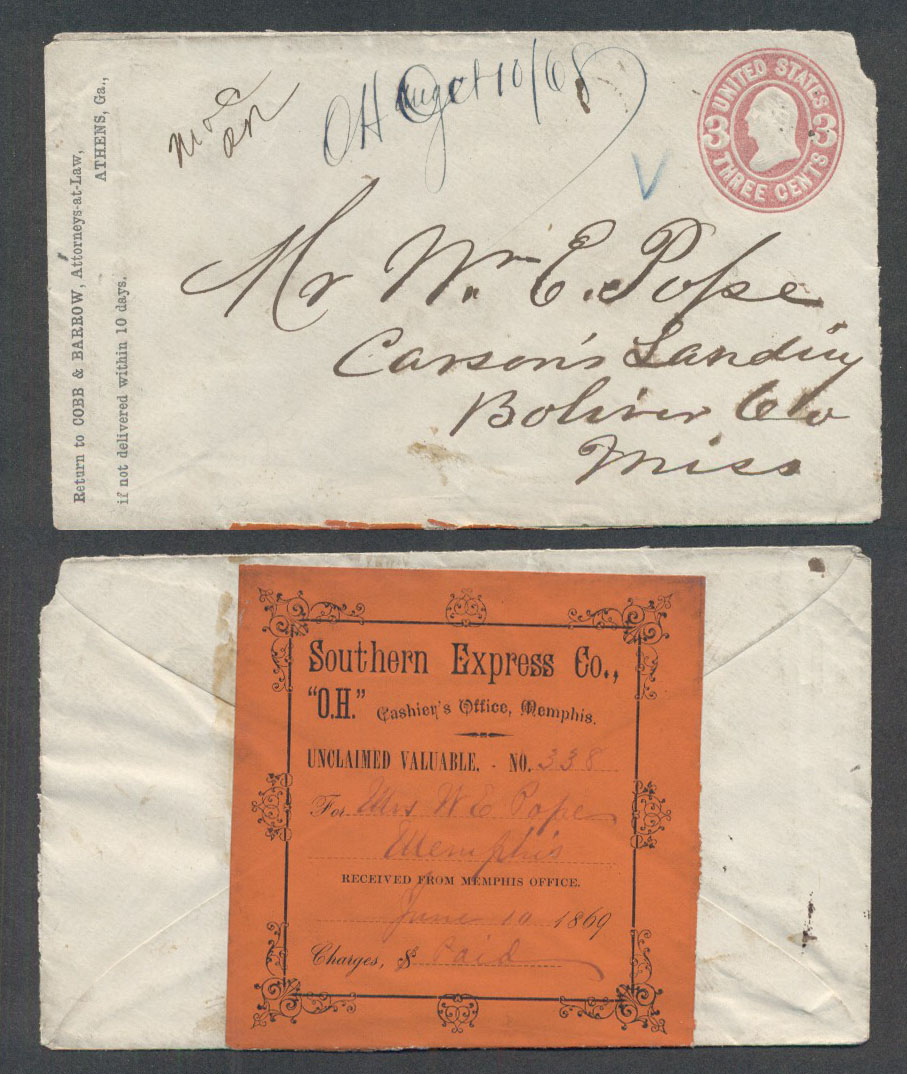 Return to COBB & BARROW, Attorneys-at-Law,
ATHENS, Ga.,
if not delivered within 10 days.
OH Oct 10/68
UNITED STATES
3 3
THREE CENTS
V
Mr Wm E. Pope
Carson's Landing
Boliver Co
Miss
Southern Express Co.,
"O.H." Cashier's Office, Memphis.
UNCLAIMED VALUABLE. - NO. 338
For Mrs W E Pope
Memphis
RECEIVED FROM MEMPHIS OFFICE.
June 10 1869
Charges, $ Paid